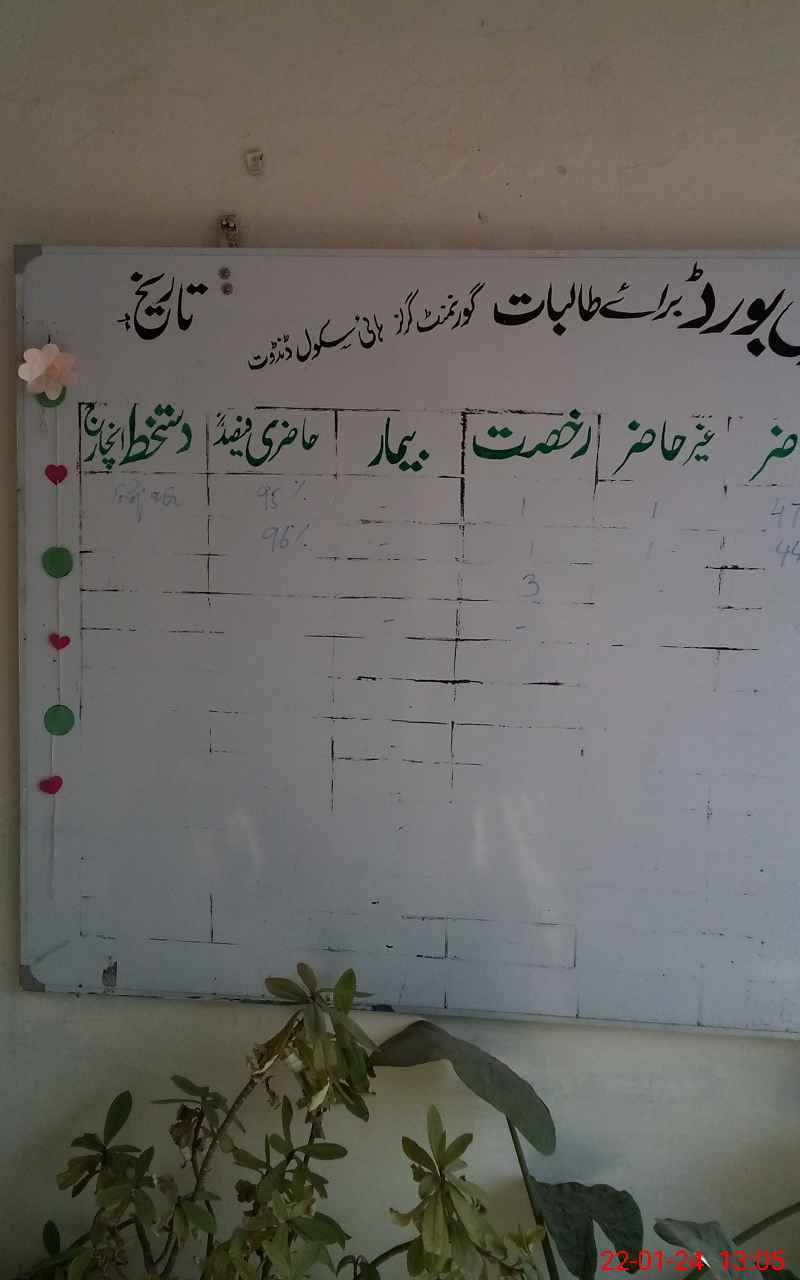 بورڈ برائے طالبات گورنمنٹ گرلز ہائی سکول ڈنڈوت تاریخ
غیر حاضر رخصت بیمار حاضری فیصد دستخط انچارج
47 1 1 - 95 %
44 1 1 - 96 %
3
- -
22-01-24 13:05